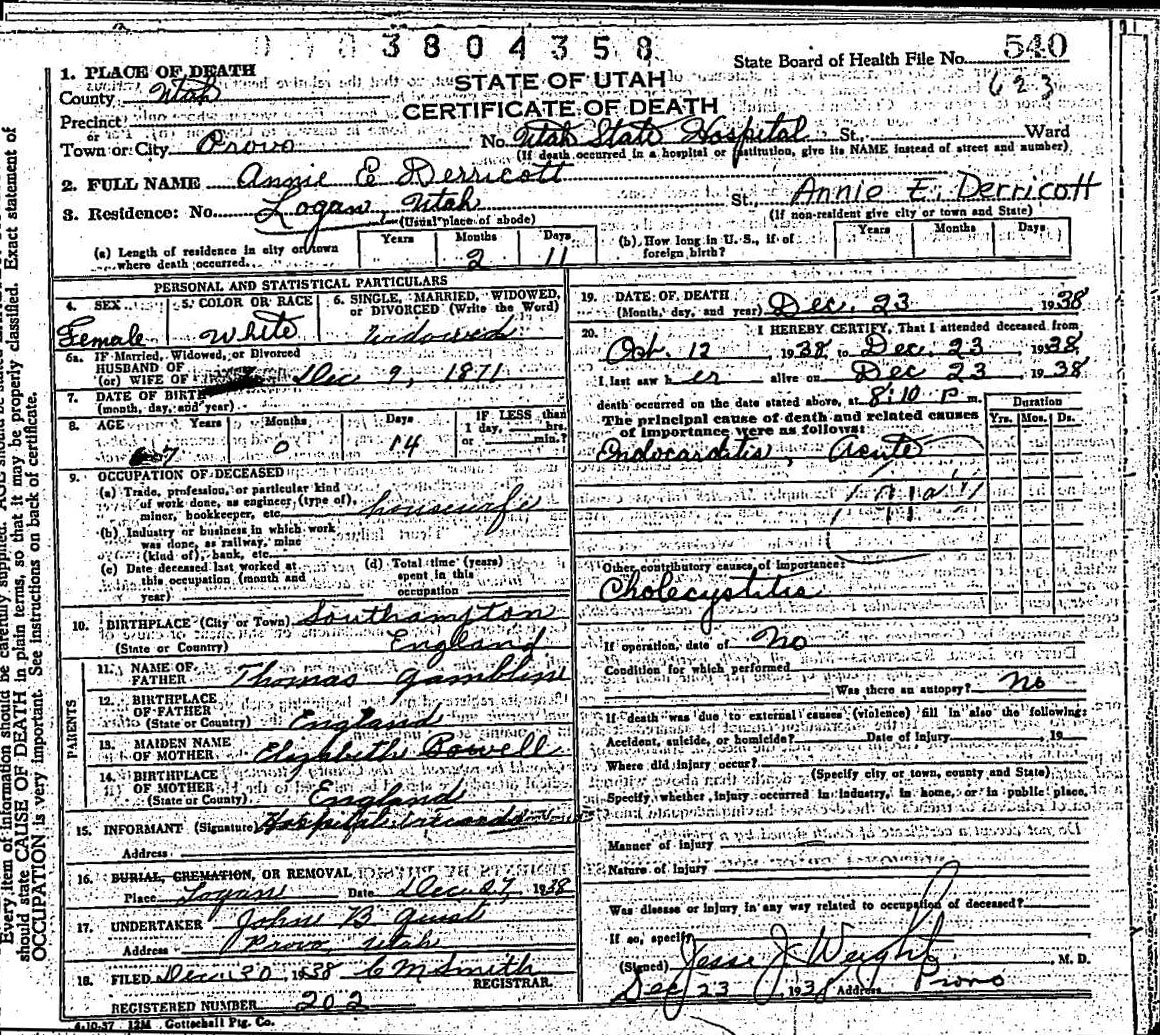 3804358
State Board of Health File No. 540
623
STATE OF UTAH
CERTIFICATE OF DEATH
1. PLACE OF DEATH
County Utah
Precinct
or
Town or City Provo No. Utah State Hospital St., Ward
(If death occurred in a hospital or institution, give its NAME instead of street and number)
2. FULL NAME Annie E Derricott
3. Residence: No. Logan, Utah St., Annie E. Derricott
(Usual place of abode) (If non-resident give city or town and State)
(a) Length of residence in city or town where death occurred Years Months 2 Days 11
(b) How long in U. S., if of foreign birth? Years Months Days
PERSONAL AND STATISTICAL PARTICULARS
4. SEX Female
5. COLOR OR RACE White
6. SINGLE, MARRIED, WIDOWED, or DIVORCED (Write the Word) Widowed
6a. IF Married, Widowed, or Divorced
HUSBAND OF
(or) WIFE OF
Dec 9, 1871
7. DATE OF BIRTH
(month, day, and year)
8. AGE Years 67 Months 0 Days 14 IF LESS than 1 day, hrs. or min.?
9. OCCUPATION OF DECEASED
(a) Trade, profession, or particular kind
of work done, as engineer, (type of),
miner, bookkeeper, etc. housewife
(b) Industry or business in which work
was done, as railway, mine
(kind of), bank, etc.
(c) Date deceased last worked at
this occupation (month and
year)
(d) Total time (years)
spent in this
occupation
10. BIRTHPLACE (City or Town) Southampton
(State or Country) England
PARENTS
11. NAME OF
FATHER Thomas Gambline
12. BIRTHPLACE
OF FATHER
(State or Country) England
13. MAIDEN NAME
OF MOTHER Elizabeth Powell
14. BIRTHPLACE
OF MOTHER
(State or Country) England
15. INFORMANT (Signature) Hospital records
Address
16. BURIAL, CREMATION, OR REMOVAL
Place Logan Date Dec 27, 1938
17. UNDERTAKER John B Guist
Address Provo Utah
18. FILED Dec 30 1938 C M Smith
REGISTRAR.
REGISTERED NUMBER 202
4-10-37 12M Gottschall Ptg. Co.
19. DATE OF DEATH
(Month, day, and year) Dec. 23 1938
20. I HEREBY CERTIFY, That I attended deceased from
Oct. 12, 1938, to Dec. 23 1938,
I last saw her alive on Dec 23 1938
death occurred on the date stated above, at 8:10 P m.
The principal cause of death and related causes
of importance were as follows:
Duration
Yrs. Mos. Ds.
Endocarditis, Acute
Other contributory causes of importance:
Cholecystitis
If operation, date of No
Condition for which performed
Was there an autopsy? No
If death was due to external causes (violence) fill in also the following:
Accident, suicide, or homicide? Date of injury , 19
Where did injury occur?
(Specify city or town, county and State)
Specify whether injury occurred in industry, in home, or in public place,
Manner of injury
Nature of injury
Was disease or injury in any way related to occupation of deceased?
If so, specify
(Signed) Jesse J Weight, M. D.
Dec 23, 1938 Address Provo
Every item of information should be carefully supplied. AGE should be
should state CAUSE OF DEATH in plain terms, so that it may be properly classified. Exact statement of
OCCUPATION is very important. See instructions on back of certificate.